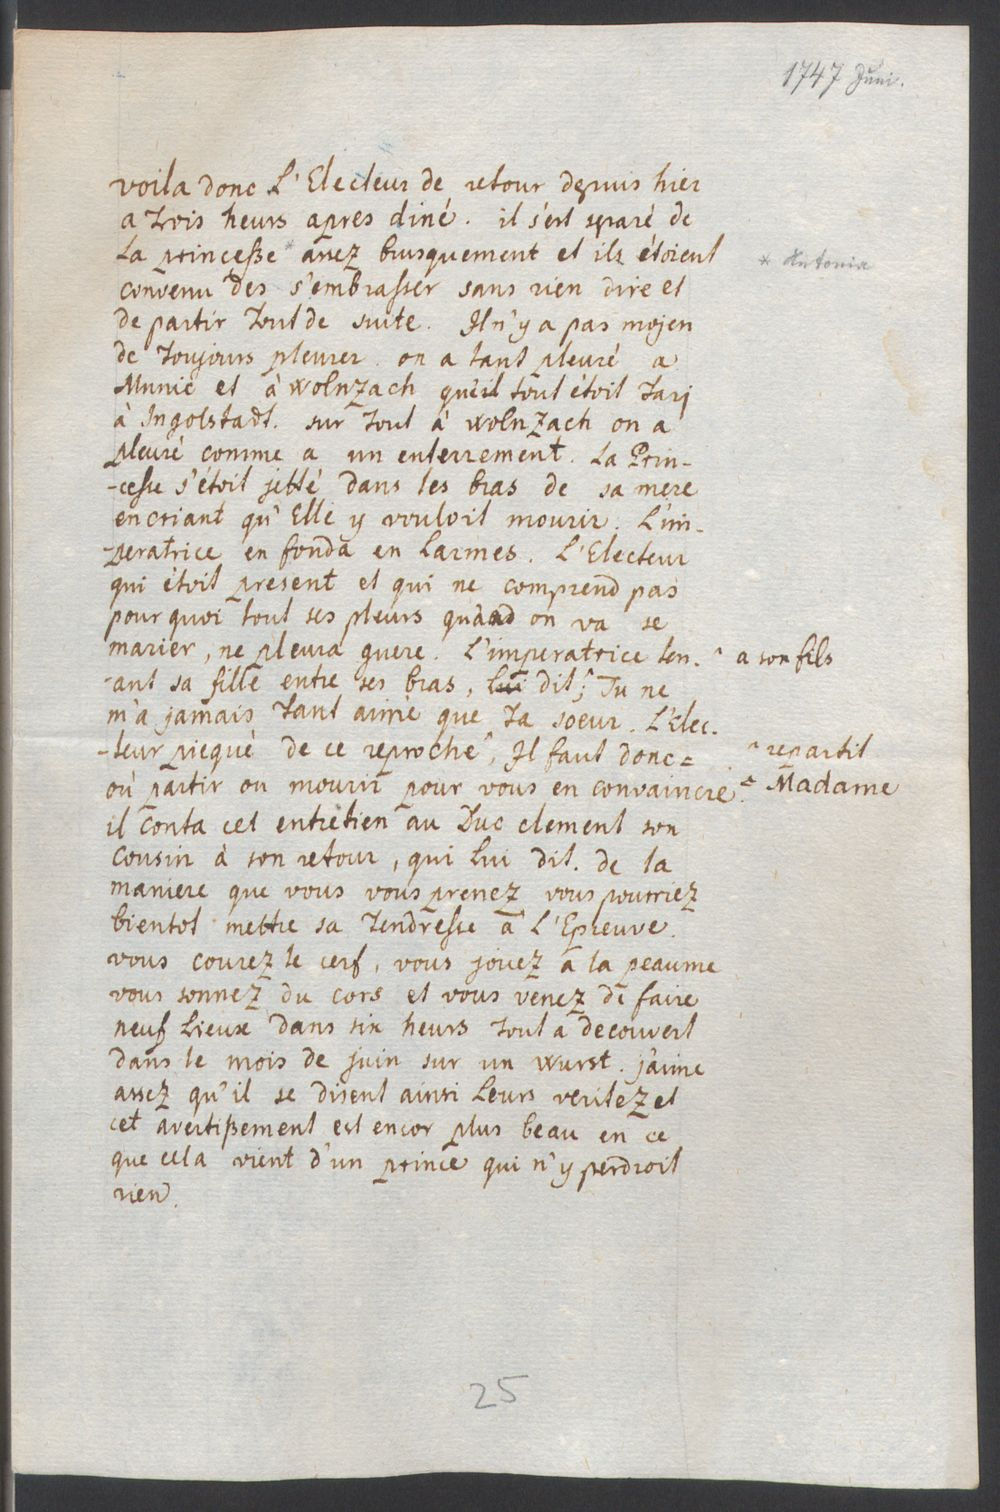 1747 Juni.
voila donc L'Electeur de retour depuis hier
a trois heurs apres diné. il s'est separé de
La princesse * assez brusquement et ils étoient
* Antonia
convenu des s'embrasser sans rien dire et
de partir tout de suite. Il n'y a pas mojen
de toujours pleurer. on a tant pleuré a
Munic et à wolnzach qu'il tout étoit tarj
à Ingolstadt. sur tout à wolnzach on a
pleuré comme a un enterrement. La Prin-
-cesse s'étoit jetté dans les bras de sa mere
en criant qu'Elle y vouloit mourir. L'im-
-peratrice en fonda en larmes. L'Electeur
qui étoit present et qui ne comprend pas
pour quoi tout ses pleurs quand on va se
marier, ne pleura guere. L'imperatrice ten-
^ a son fils
-ant sa fille entre ses bras, lui dit ^; Tu ne
m'a jamais tant aimé que ta soeur. L'Elec-
-teur picqué de ce reproche ^, Il faut donc =
^ repartit
où partir ou mourir pour vous en convaincre =.
= Madame
il conta cet entretien au Duc clement son
cousin à son retour, qui lui dit. de la
maniere que vous vous prenez vous pourriez
bientot mettre sa tendresse à L'Epreuve.
vous courez le cerf, vous jouez a la peaume
vous sonnez du cors et vous venez de faire
neuf lieux dans six heurs tout a decouvert
dans le mois de juin sur un wurst. j'aime
assez qu'il se disent ainsi leurs veritez et
cet avertissement est encor plus beau en ce
que cela vient d'un prince qui n'y perdroit
rien.
25